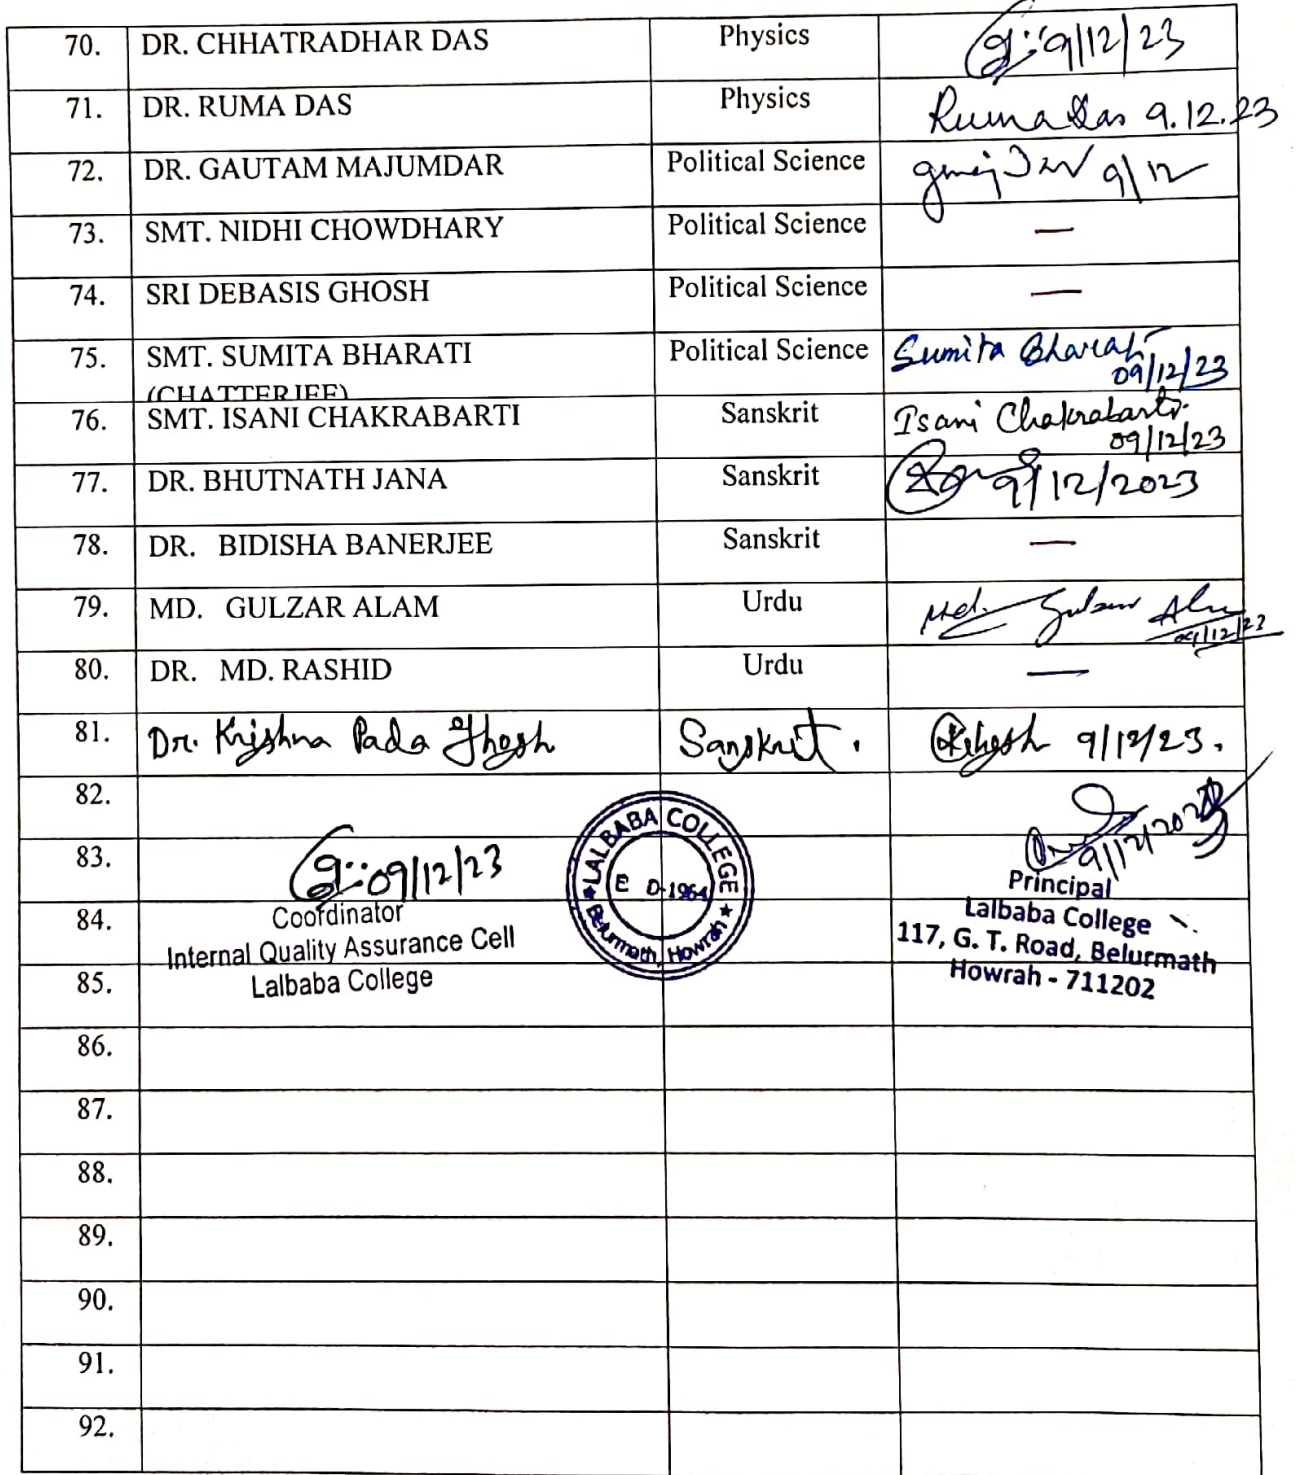 70. DR. CHHATRADHAR DAS Physics 9/12/23
71. DR. RUMA DAS Physics Ruma Das 9.12.23
72. DR. GAUTAM MAJUMDAR Political Science 9/12
73. SMT. NIDHI CHOWDHARY Political Science —
74. SRI DEBASIS GHOSH Political Science —
75. SMT. SUMITA BHARATI Political Science Sumita Bharati
(CHATTERJEE) 09/12/23
76. SMT. ISANI CHAKRABARTI Sanskrit Isani Chakrabarti
09/12/23
77. DR. BHUTNATH JANA Sanskrit 9/12/2023
78. DR. BIDISHA BANERJEE Sanskrit —
79. MD. GULZAR ALAM Urdu Md. Gulzar Alam
09/12/23
80. DR. MD. RASHID Urdu —
81. Dr. Krishna Pada Ghosh Sanskrit. KGhosh 9/12/23.
82.
83. 09/12/23 9/12/2023
84.
85.
Coordinator
Internal Quality Assurance Cell
Lalbaba College
LALBABA COLLEGE
E D-1964
Belurmath, Howrah
Principal
Lalbaba College
117, G. T. Road, Belurmath
Howrah - 711202
86.
87.
88.
89.
90.
91.
92.